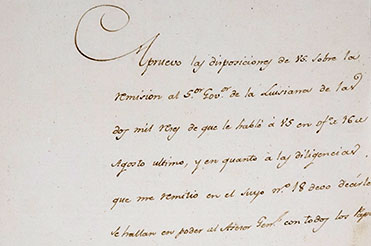 Apruevo las disposiciones de VS. sobre la
remision al S.or Gov.or de la Luisiana de las
dos mil reses de que le hablò à VS en of.o 16 de
Agosto ultimo, y en quanto à las diligencias
que me remitio en el suyo n.o 18 devo decirle
se hallan en poder al Asesor Gen.l con todos los